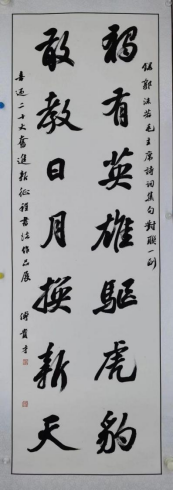 錄郭沫若毛主席詩詞集句對聯一
獨有英雄驅虎豹
敢教日月換新天
喜迎二十大奮進新征程書法作品展
傅貴才